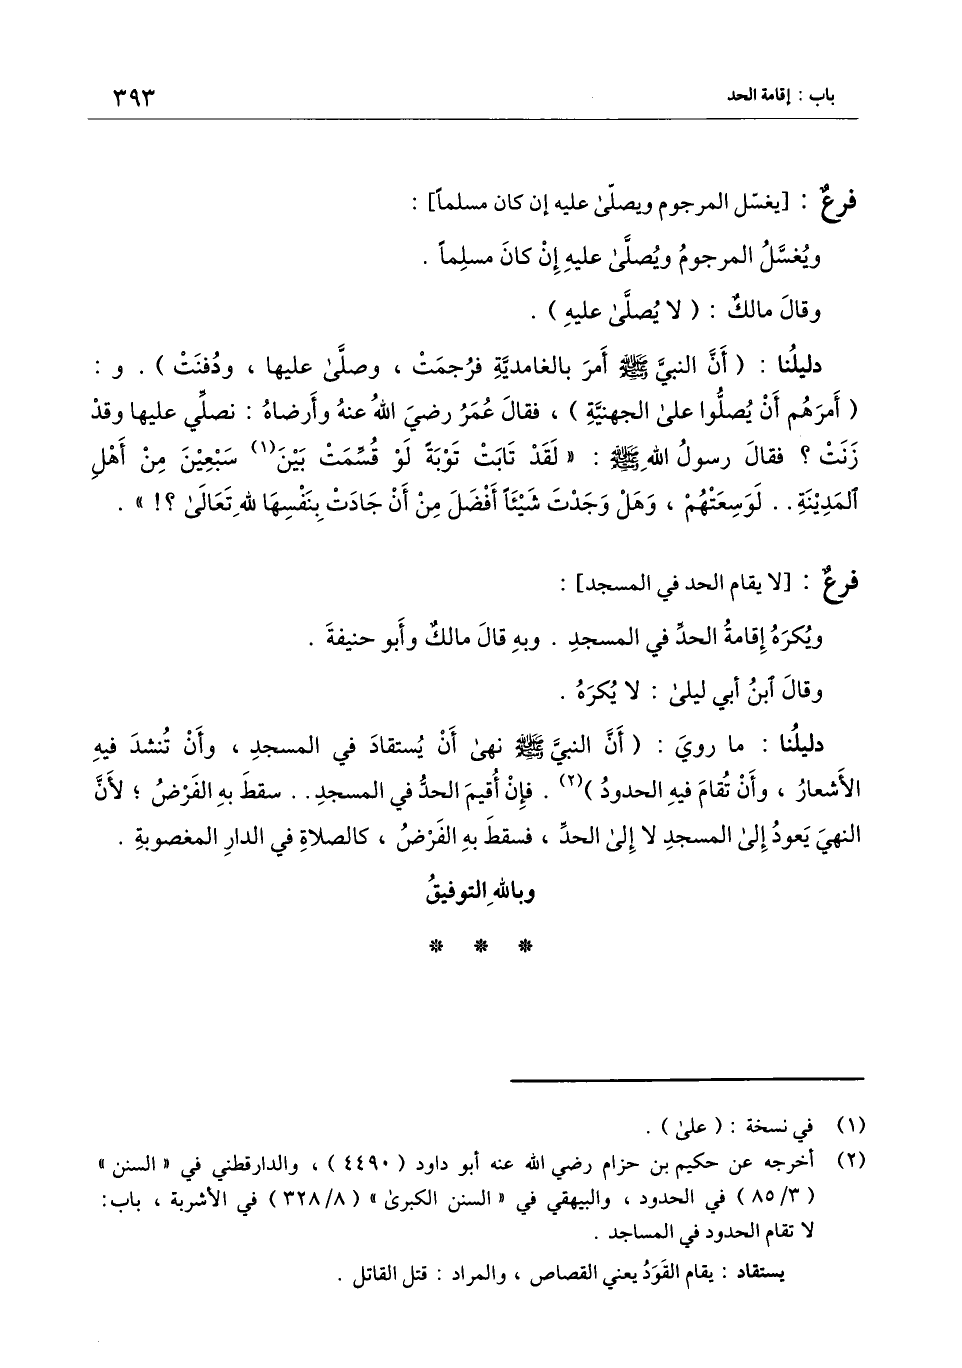 باب : إقامة الحد ٣٩٣
فرعٌ : [يغسّل المرجوم ويصلّىٰ عليه إن كان مسلماً] :
ويُغسَّلُ المرجومُ ويُصلَّىٰ عليهِ إنْ كانَ مسلِماً .
وقالَ مالكٌ : ( لا يُصلَّىٰ عليهِ ) .
دليلُنا : ( أَنَّ النبيَّ ﷺ أَمرَ بالغامديَّةِ فرُجمَتْ ، وصلَّىٰ عليها ، ودُفنَتْ ) . و :
( أَمرَهُم أَنْ يُصلُّوا علىٰ الجهنيَّةِ ) ، فقالَ عُمَرُ رضيَ اللهُ عنهُ وأَرضاهُ : نصلِّي عليها وقدْ
زَنَتْ ؟ فقالَ رسولُ اللهِ ﷺ : « لَقَدْ تَابَتْ تَوْبَةً لَوْ قُسِّمَتْ بَيْنَ(١) سَبْعِيْنَ مِنْ أَهْلِ
ٱلمَدِيْنَةِ . . لَوَسِعَتْهُمْ ، وَهَلْ وَجَدْتَ شَيْئَاً أَفْضَلَ مِنْ أَنْ جَادَتْ بِنَفْسِهَا للهِ تَعَالَىٰ ؟! » .
فرعٌ : [لا يقام الحد في المسجد] :
ويُكرَهُ إقامةُ الحدِّ في المسجدِ . وبهِ قالَ مالكٌ وأَبو حنيفةَ .
وقالَ ٱبنُ أبي ليلىٰ : لا يُكرَهُ .
دليلُنا : ما رويَ : ( أَنَّ النبيَّ ﷺ نهىٰ أَنْ يُستقادَ في المسجدِ ، وأَنْ تُنشدَ فيهِ
الأَشعارُ ، وأَنْ تُقامَ فيهِ الحدودُ )(٢) . فإنْ أُقيمَ الحدُّ في المسجدِ . . سقطَ بهِ الفَرْضُ ؛ لأَنَّ
النهيَ يَعودُ إلىٰ المسجدِ لا إلىٰ الحدِّ ، فسقطَ بهِ الفَرْضُ ، كالصلاةِ في الدارِ المغصوبةِ .
وباللهِ التوفيقُ
* * *
(١) في نسخة : ( علىٰ ) .
(٢) أخرجه عن حكيم بن حزام رضي الله عنه أبو داود ( ٤٤٩٠ ) ، والدارقطني في « السنن »
( ٣/ ٨٥ ) في الحدود ، والبيهقي في « السنن الكبرىٰ » ( ٣٢٨/٨ ) في الأشربة ، باب :
لا تقام الحدود في المساجد .
يستقاد : يقام القَوَدُ يعني القصاص ، والمراد : قتل القاتل .